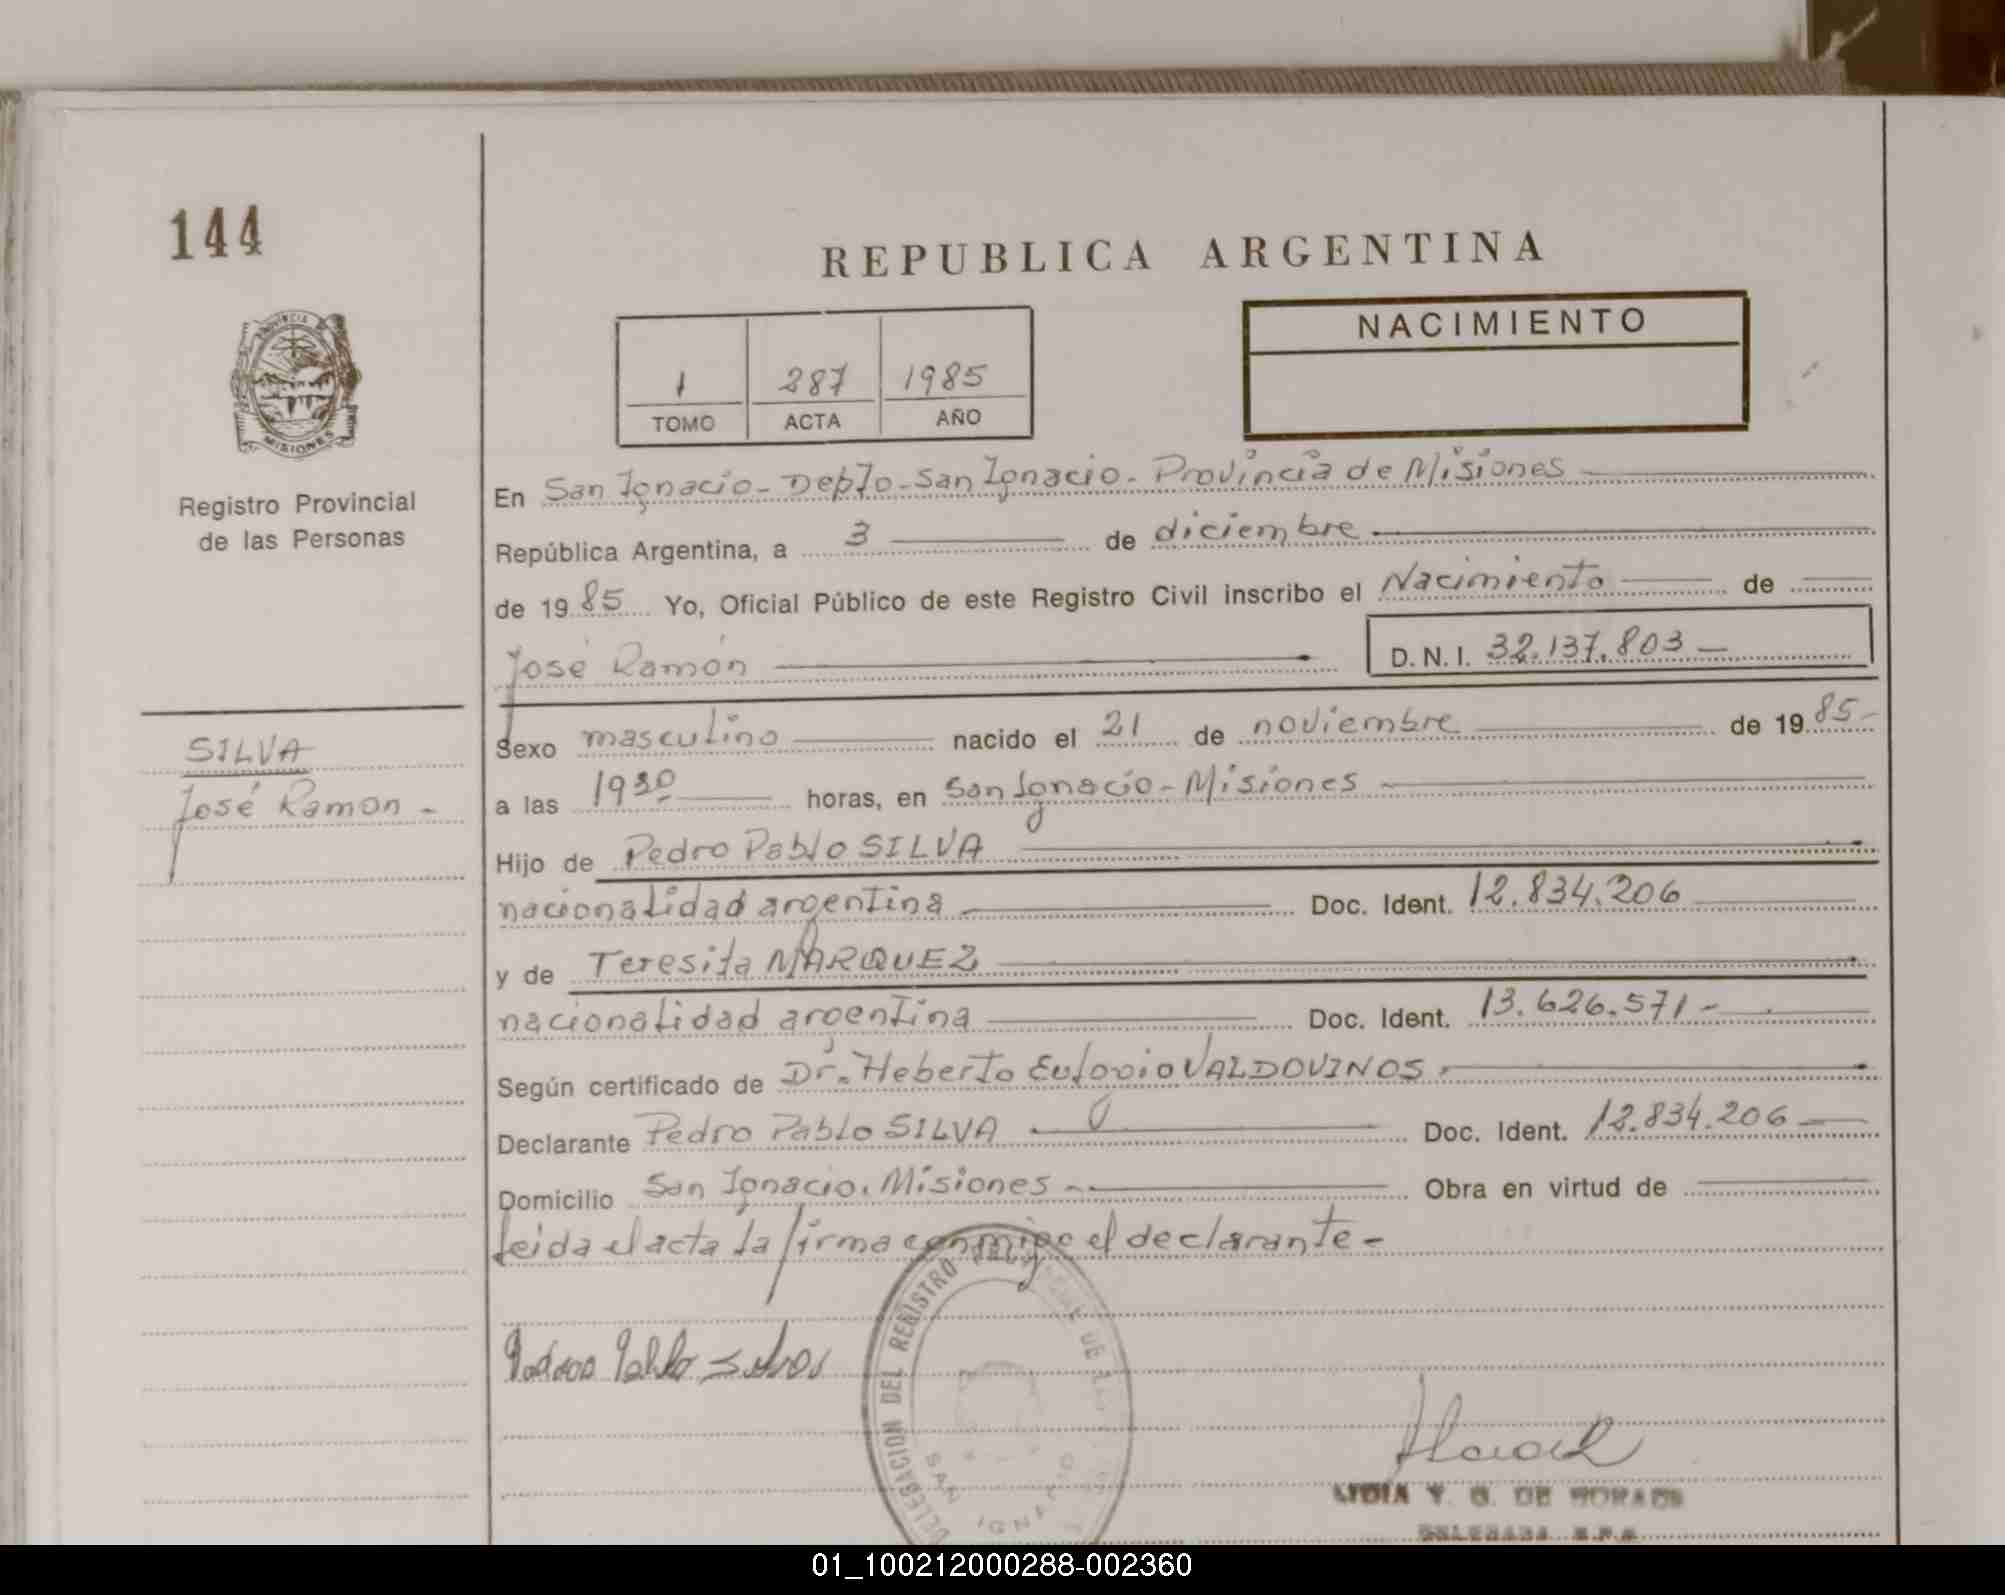 144
REPUBLICA ARGENTINA
PROVINCIA DE MISIONES
NACIMIENTO
1 287 1985
TOMO ACTA AÑO
Registro Provincial
de las Personas
En San Ignacio - Depto - San Ignacio - Provincia de Misiones
República Argentina, a 3 de diciembre
de 1985 Yo, Oficial Público de este Registro Civil inscribo el Nacimiento de
José Ramón D.N.I. 32.137.803 -
SILVA
José Ramon -
Sexo masculino nacido el 21 de noviembre de 1985-
a las 1930 horas, en San Ignacio - Misiones
Hijo de Pedro Pablo SILVA
nacionalidad argentina Doc. Ident. 12.834.206
y de Teresita MARQUEZ
nacionalidad argentina Doc. Ident. 13.626.571 -
Según certificado de Dr. Heberto Eulogio VALDOVINOS.
Declarante Pedro Pablo SILVA Doc. Ident. 12.834.206
Domicilio San Ignacio. Misiones - Obra en virtud de
leida el acta la firma conmigo el declarante -
DELEGACION DEL REGISTRO DE
SAN IGNACIO
Pedro Pablo Silva
LIDIA Y. G. DE MORAES
01_100212000288-002360